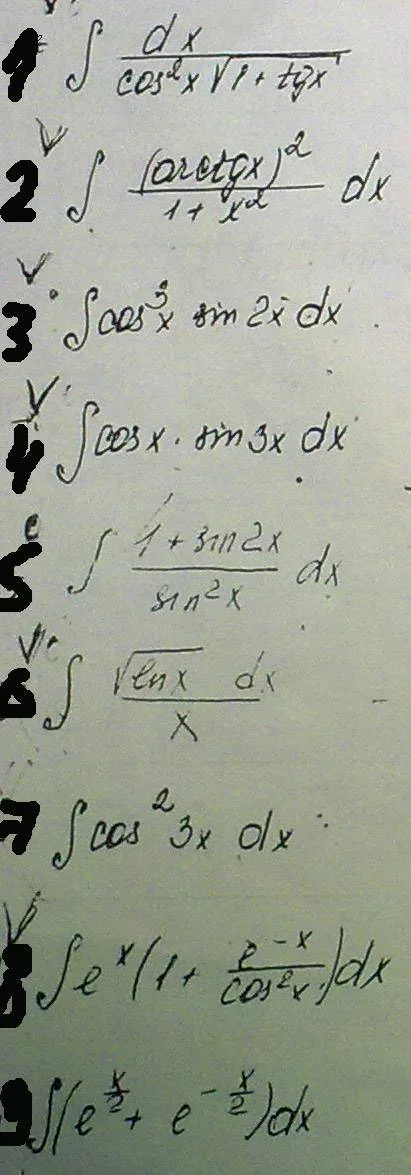 1 ∫ dx / (cos²x √(1 + tgx))
2 ∫ (arctgx)² / (1 + x²) dx
3 ∫ cos³x sin 2x dx
4 ∫ cosx · sin 3x dx
5 ∫ (1 + sin 2x) / (sin²x) dx
6 ∫ √(ln x) dx / x
7 ∫ cos² 3x dx
8 ∫ eˣ (1 + e⁻ˣ / cos²x) dx
9 ∫ (e^(x/2) + e^(-x/2)) dx